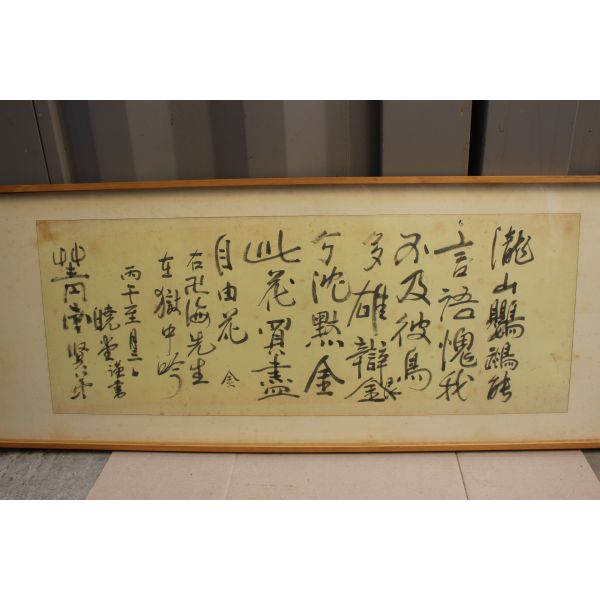 瀧山鸚鵡能
言語愧我
不及彼鳥
多雄辯銀
兮沈默金
此花買盡
自由花 金
右卍海先生
在獄中吟
丙午至月
曉堂謹書
菁南賢弟